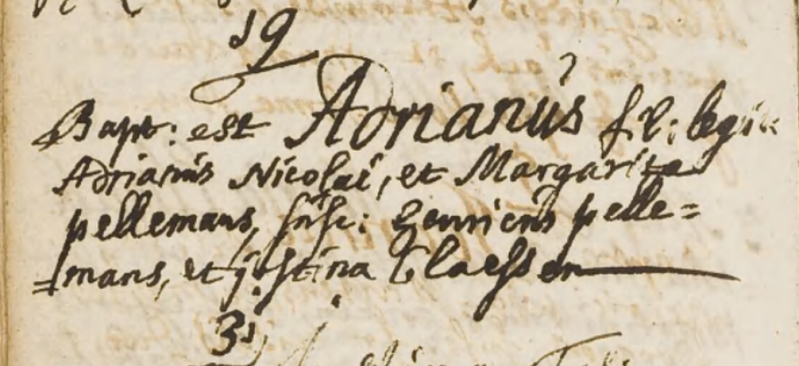 19
Bapt: est Adrianus fil: legit
Adrianus Nicolai, et Margarita
pellemans, susc: henricus pelle=
=mans, et justina Claessen
31